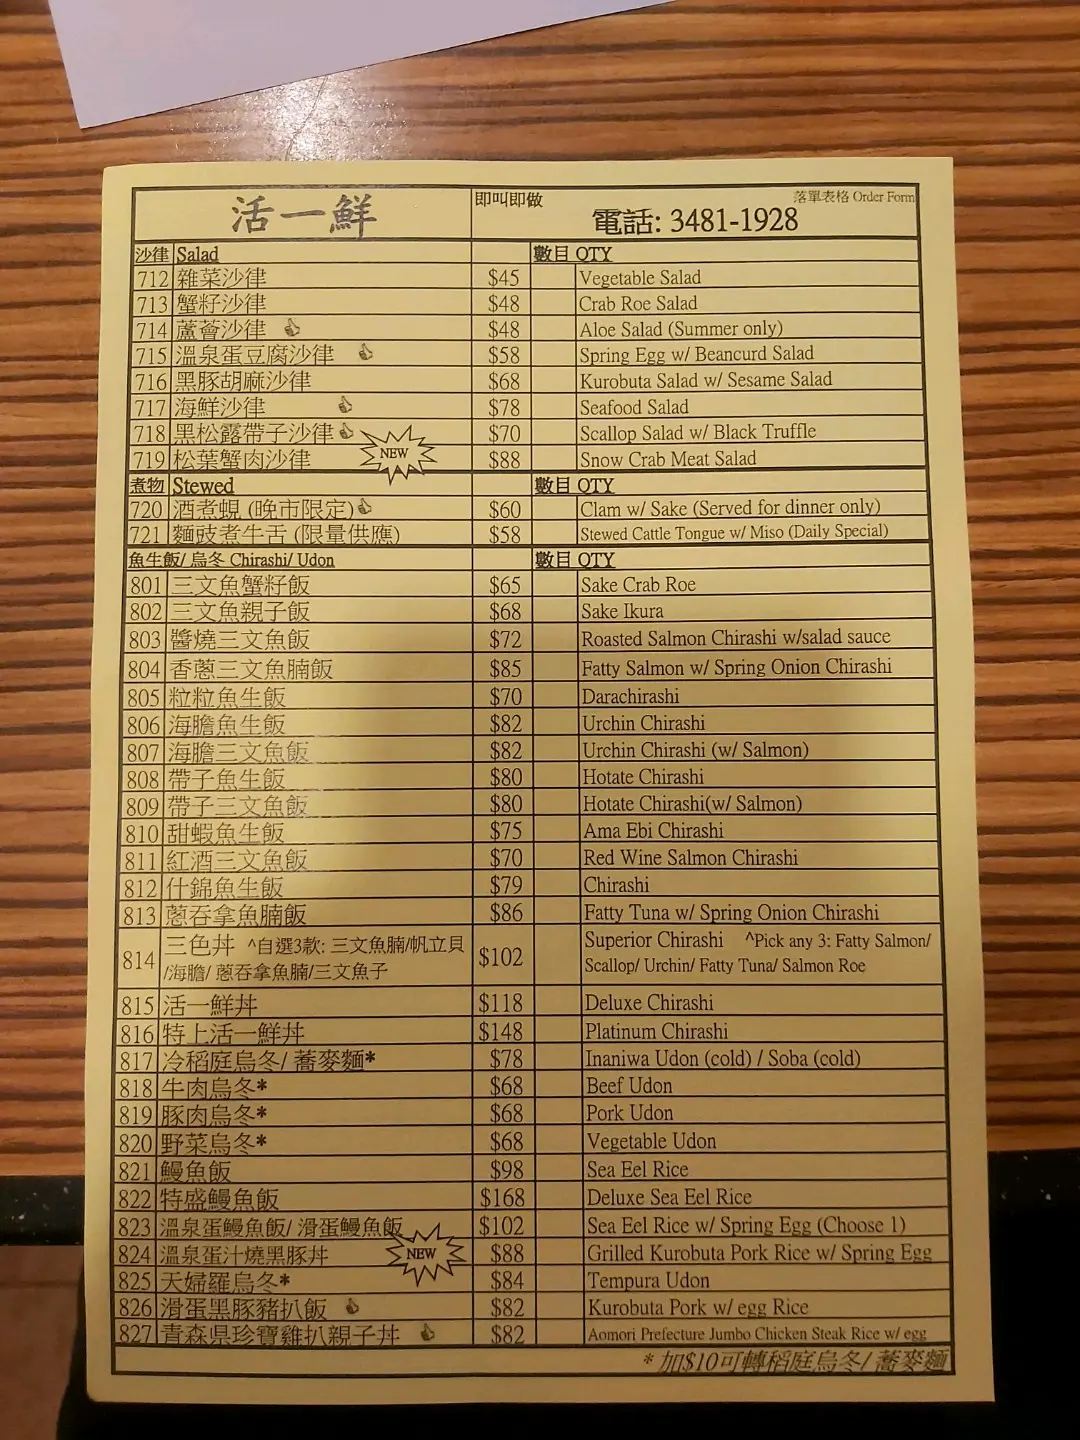 活一鮮
即叫即做
落單表格 Order Form
電話: 3481-1928
沙律 Salad 數目 QTY
712 雜菜沙律 $45 Vegetable Salad
713 蟹籽沙律 $48 Crab Roe Salad
714 蘆薈沙律 $48 Aloe Salad (Summer only)
715 溫泉蛋豆腐沙律 $58 Spring Egg w/ Beancurd Salad
716 黑豚胡麻沙律 $68 Kurobuta Salad w/ Sesame Salad
717 海鮮沙律 $78 Seafood Salad
718 黑松露帶子沙律 $70 Scallop Salad w/ Black Truffle
719 松葉蟹肉沙律 NEW $88 Snow Crab Meat Salad
煮物 Stewed 數目 QTY
720 酒煮蜆 (晚市限定) $60 Clam w/ Sake (Served for dinner only)
721 麵豉煮牛舌 (限量供應) $58 Stewed Cattle Tongue w/ Miso (Daily Special)
魚生飯/ 烏冬 Chirashi/ Udon 數目 QTY
801 三文魚蟹籽飯 $65 Sake Crab Roe
802 三文魚親子飯 $68 Sake Ikura
803 醬燒三文魚飯 $72 Roasted Salmon Chirashi w/salad sauce
804 香蔥三文魚腩飯 $85 Fatty Salmon w/ Spring Onion Chirashi
805 粒粒魚生飯 $70 Darachirashi
806 海膽魚生飯 $82 Urchin Chirashi
807 海膽三文魚飯 $82 Urchin Chirashi (w/ Salmon)
808 帶子魚生飯 $80 Hotate Chirashi
809 帶子三文魚飯 $80 Hotate Chirashi(w/ Salmon)
810 甜蝦魚生飯 $75 Ama Ebi Chirashi
811 紅酒三文魚飯 $70 Red Wine Salmon Chirashi
812 什錦魚生飯 $79 Chirashi
813 蔥吞拿魚腩飯 $86 Fatty Tuna w/ Spring Onion Chirashi
814 三色丼 ^自選3款: 三文魚腩/帆立貝 $102 Superior Chirashi ^Pick any 3: Fatty Salmon/
/海膽/ 蔥吞拿魚腩/三文魚子 Scallop/ Urchin/ Fatty Tuna/ Salmon Roe
815 活一鮮丼 $118 Deluxe Chirashi
816 特上活一鮮丼 $148 Platinum Chirashi
817 冷稻庭烏冬/ 蕎麥麵* $78 Inaniwa Udon (cold) / Soba (cold)
818 牛肉烏冬* $68 Beef Udon
819 豚肉烏冬* $68 Pork Udon
820 野菜烏冬* $68 Vegetable Udon
821 鰻魚飯 $98 Sea Eel Rice
822 特盛鰻魚飯 $168 Deluxe Sea Eel Rice
823 溫泉蛋鰻魚飯/ 滑蛋鰻魚飯 $102 Sea Eel Rice w/ Spring Egg (Choose 1)
824 溫泉蛋汁燒黑豚丼 NEW $88 Grilled Kurobuta Pork Rice w/ Spring Egg
825 天婦羅烏冬* $84 Tempura Udon
826 滑蛋黑豚豬扒飯 $82 Kurobuta Pork w/ egg Rice
827 青森県珍寶雞扒親子丼 $82 Aomori Prefecture Jumbo Chicken Steak Rice w/ egg
* 加$10可轉稻庭烏冬/ 蕎麥麵